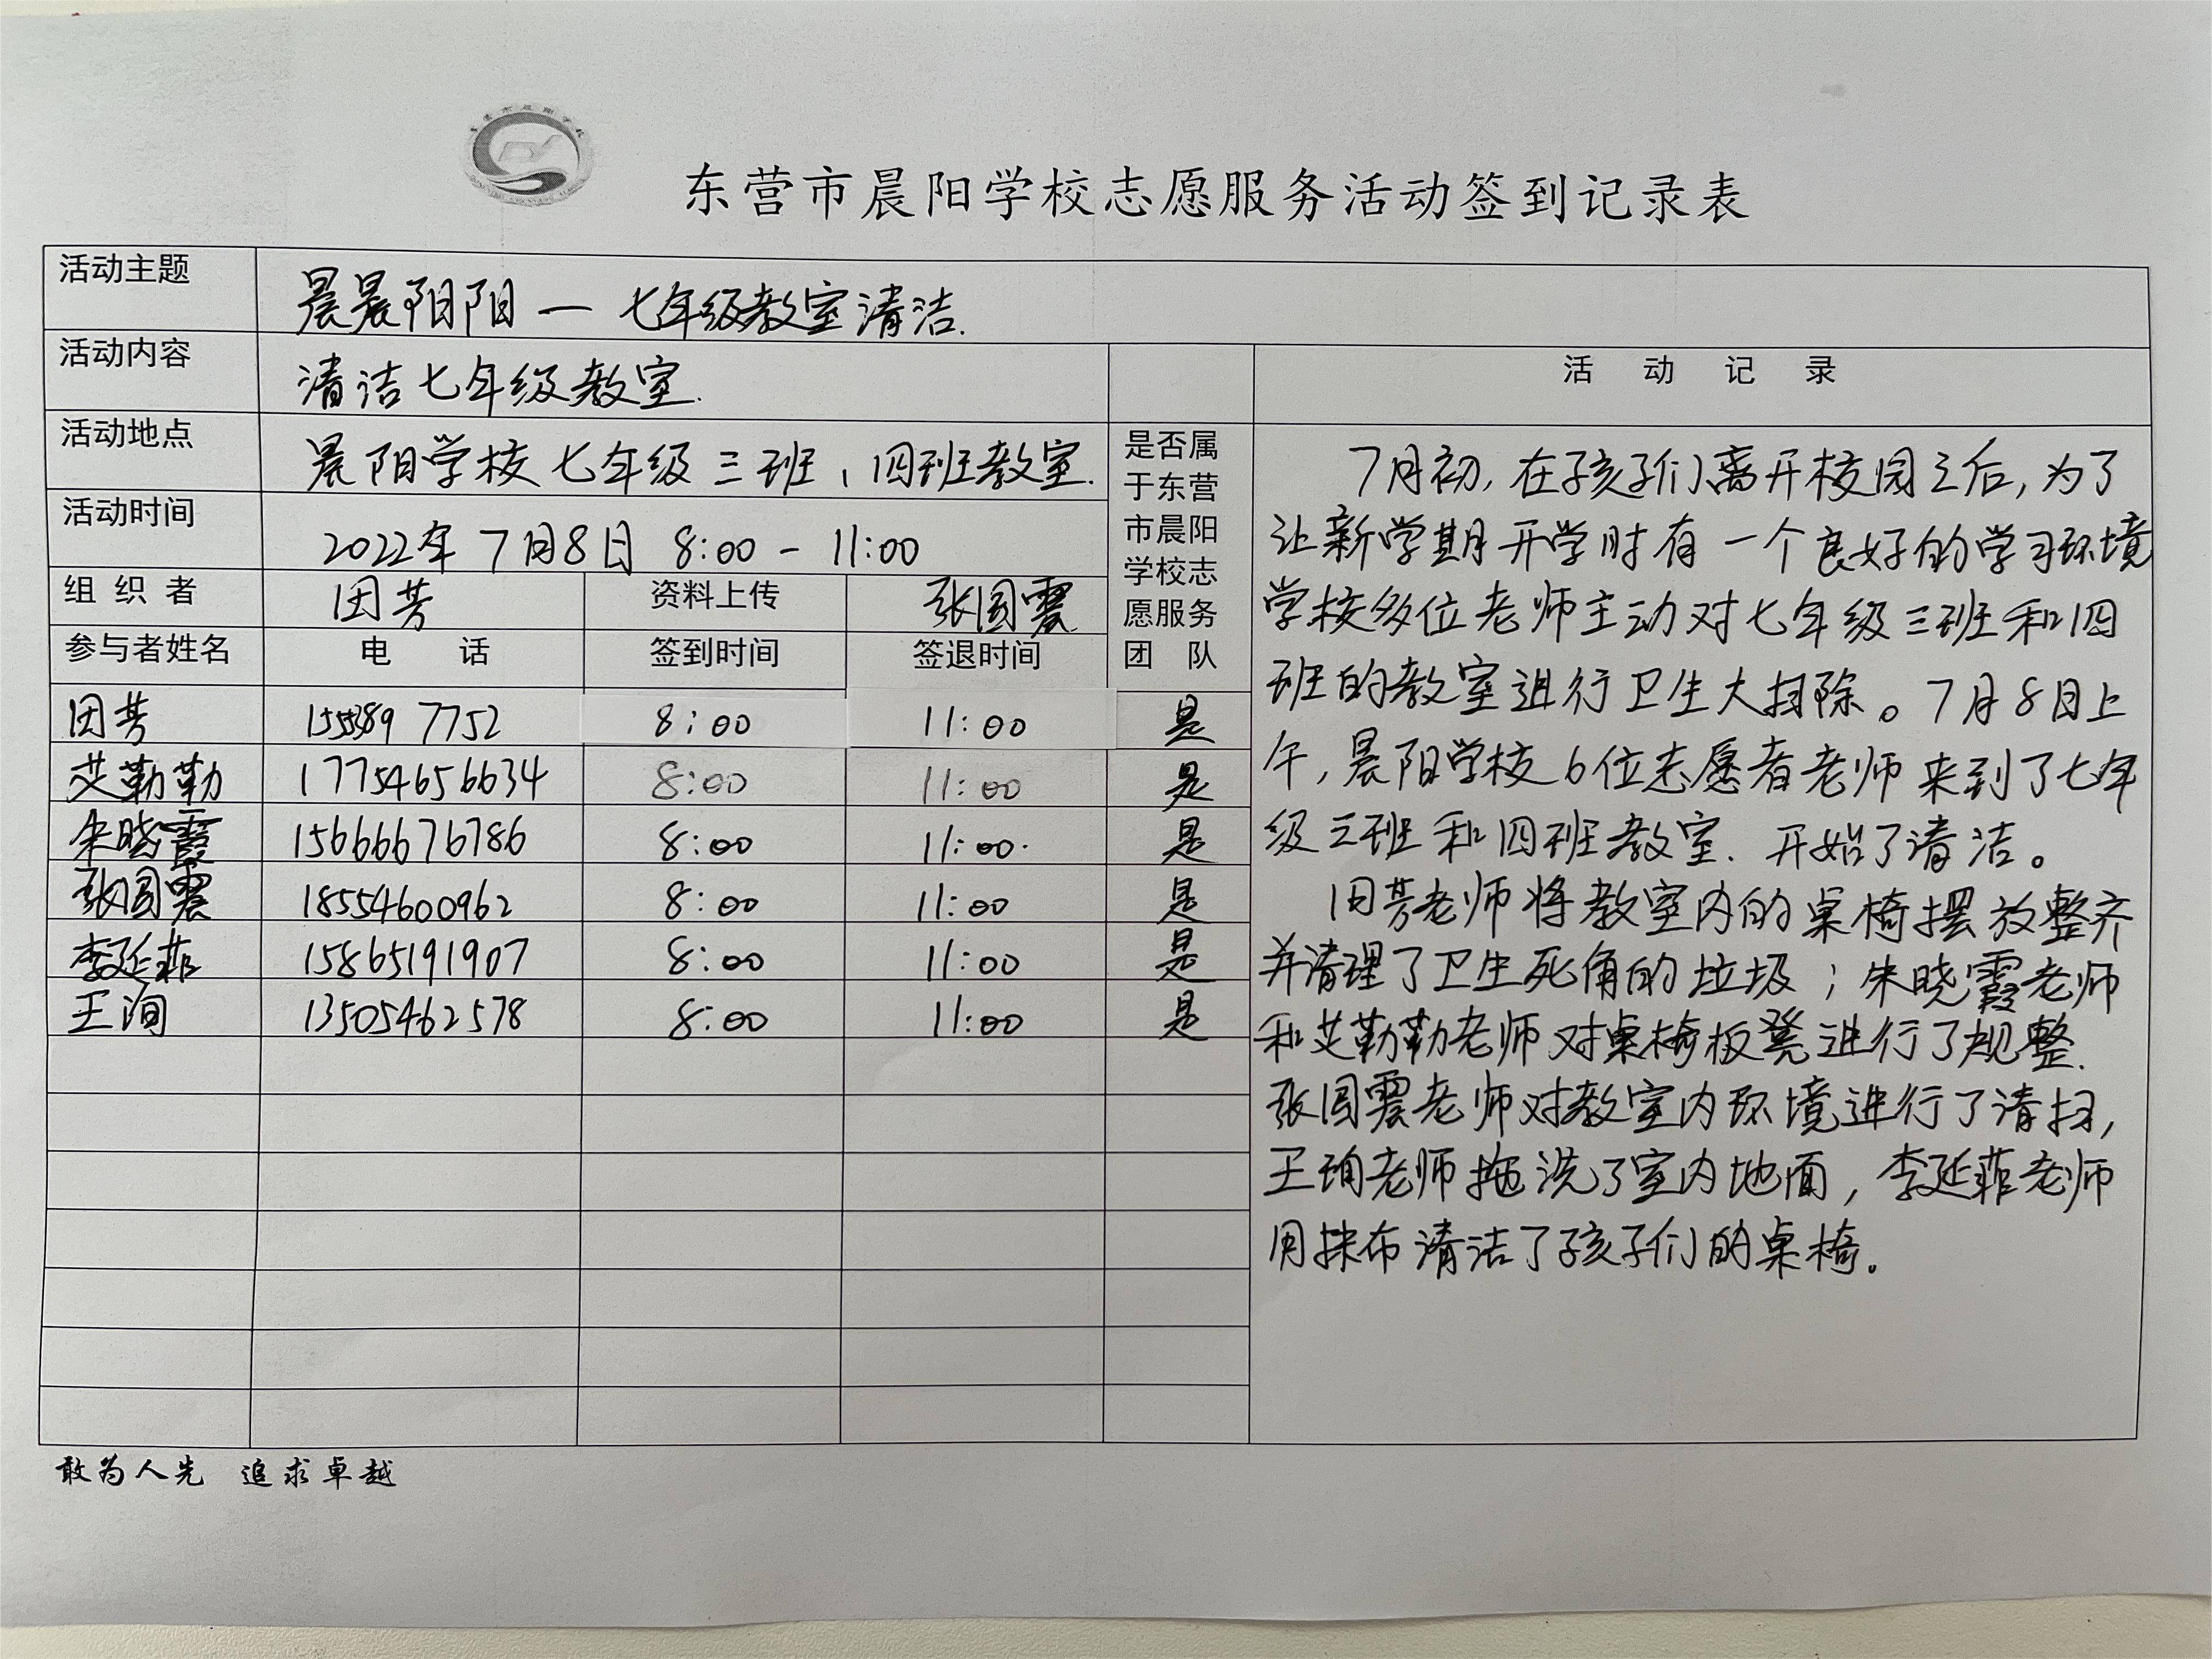 东营市晨阳学校志愿服务活动签到记录表
活动主题 晨晨阳阳一七年级教室清洁.
活动内容 清洁七年级教室.
活动地点 晨阳学校七年级三班、四班教室.
活动时间 2022年7月8日 8:00-11:00
组织者 因芳 资料上传 张国震
参与者姓名 电话 签到时间 签退时间 是否属于东营市晨阳学校志愿服务团队
因芳 7752 8:00 11:00 是
艾勒勒 17754656634 8:00 11:00 是
朱晓霞 15666676786 8:00 11:00. 是
张国震 18554600962 8:00 11:00 是
李延菲 15865191907 8:00 11:00 是
王 13505462578 8:00 11:00 是
活动记录
7月初,在孩子们离开校园之后,为了
让新学期开学时有一个良好的学习环境
学校多位老师主动对七年级三班和四
班的教室进行卫生大扫除。7月8日上
午,晨阳学校6位志愿者老师来到了七年
级三班和四班教室.开始了清洁。
芳老师将教室内的桌椅摆放整齐
并清理了卫生死角的垃圾;朱晓霞老师
和艾勒勒老师对桌椅板凳进行了规整.
张国震老师对教室内环境进行了清扫,
王老师拖洗了室内地面,李延菲老师
用抹布清洁了孩子们的桌椅。
敢为人先 追求卓越